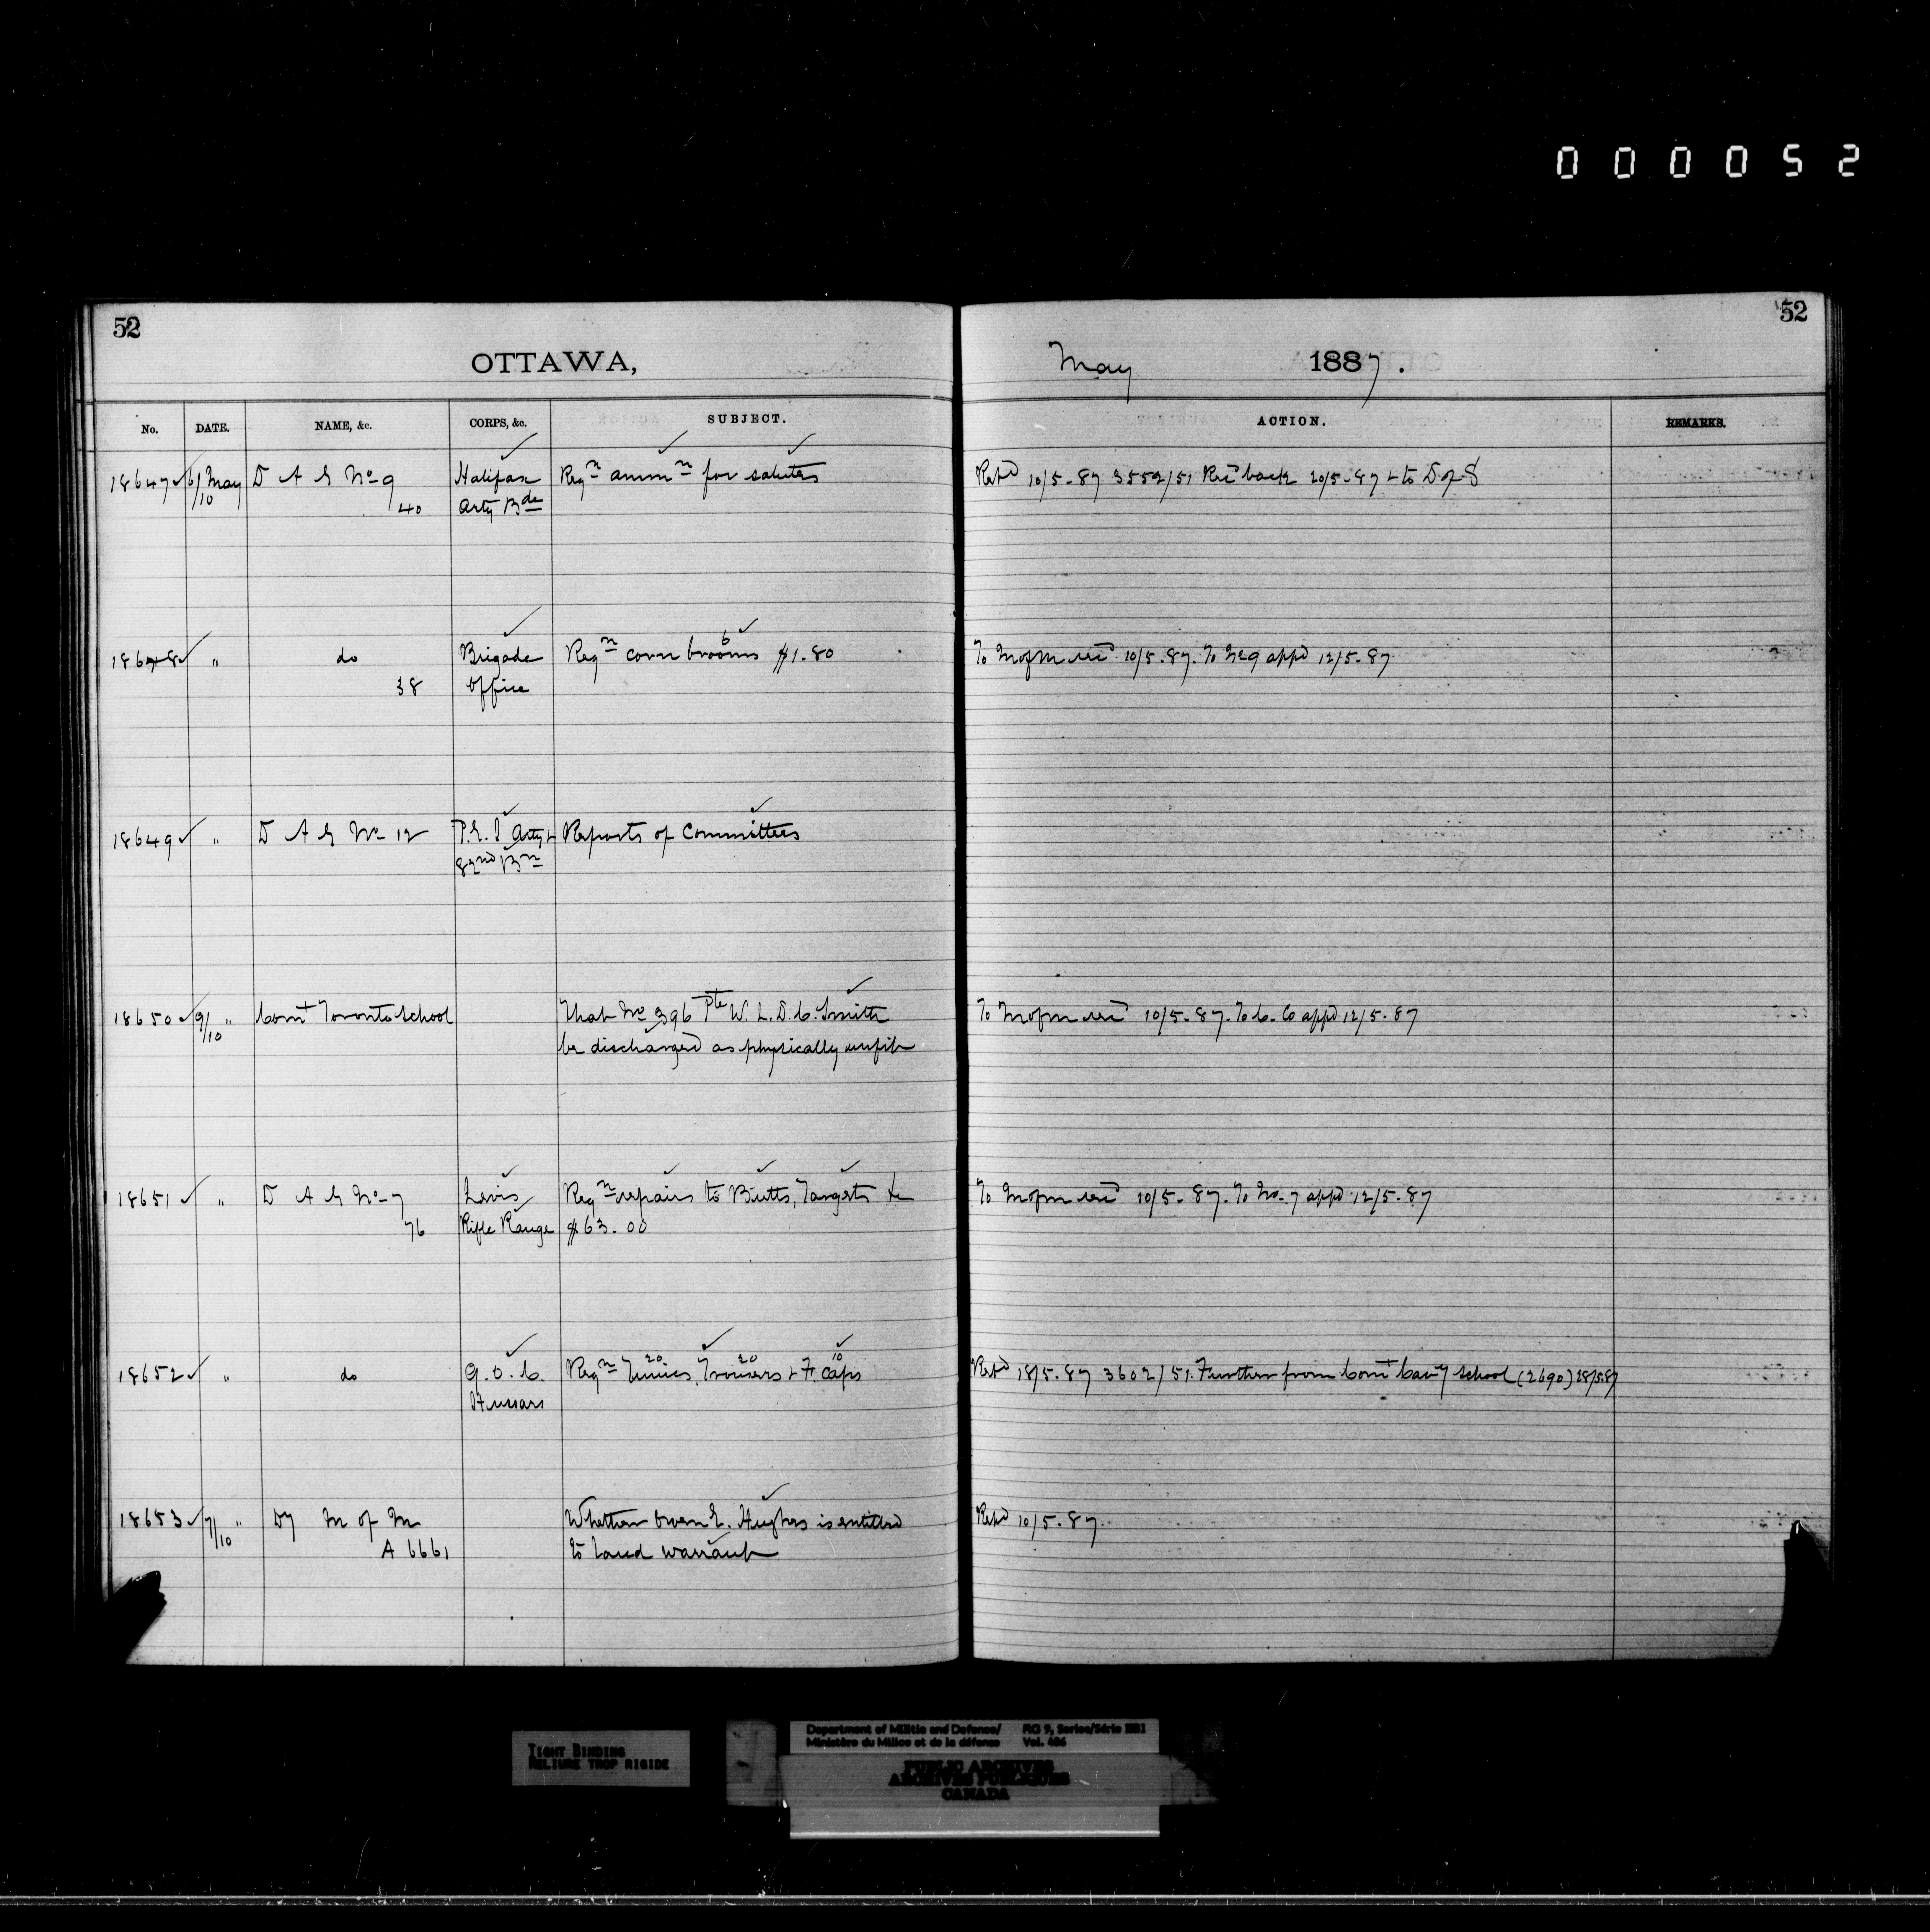 000052
52
52
OTTAWA,
May 1887.
No. DATE. NAME, &c. CORPS, &c. SUBJECT. ACTION. REMARKS.
18647 6/10 May D A G No 9 Halifax Reqn ammn for salutes Repd 10/5-87 3552/51 Recd back 20/5-87 + to D of S
40 Arty Bde
18648 " do Brigade Reqn 6 corn brooms $1.80 To M of M recd 10/5.87. To No 9 appd 12/5.87
38 Office
18649 " D A G No 12 P.E.I Arty + Reports of Committees
82nd Bn
18650 9/10 " Comt Toronto School That No 396 Pte W. L. D. C. Smith To M of M recd 10/5-87. To C. Co appd 12/5-87
be discharged as physically unfit
18651 " D A G No-7 Levis Reqn repairs to Butts, Targets &c To M of M recd 10/5-87. To No-7 appd 12/5-87
76 Rifle Range $63.00
18652 " do Q.O.C. Reqn 20 Tunics, 20 Trousers + 10 F. Caps Repd 18/5.87 3602/51. Further from Comt Cavy School (2690) 28/5.87
Hussars
18653 7/10 " Dy M of M Whether Owen E. Hughes is entitled Repd 10/5.87
A 6661 to land warrant
TIGHT BINDING
RELIURE TROP RIGIDE
Department of Militia and Defence/ RG 9, Series/Série IIB1
Ministère du Milice et de la défense Vol. 486
PUBLIC ARCHIVES
ARCHIVES PUBLIQUES
CANADA